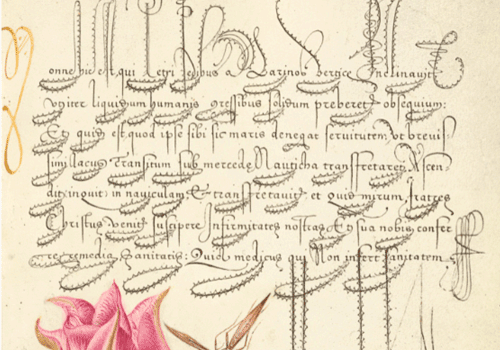 onne hic est, qui Petri a Marinos vertice Inclinavit:
liquidum humanis gressibus solidum preberet obsequium:
Et quid est, quod ipse sibi sic maris denegat servitutem, Vt brevis
simi lacus transitum sub mercede Nauticha transfretaret, Ascen
dit, inquit, in naviculam, Et transfretavit, et Quid mirum, fratres
Christus Venit, suscipere Infirmitates nostras, Et sua nobis confer
re remedia Sanitatis: Quid medicus qui Non infert sanitatem